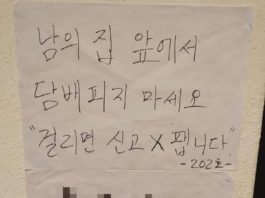 남의 집 앞에서
담배피지 마세오
"걸리면 신고 X 팹니다"
-202호-